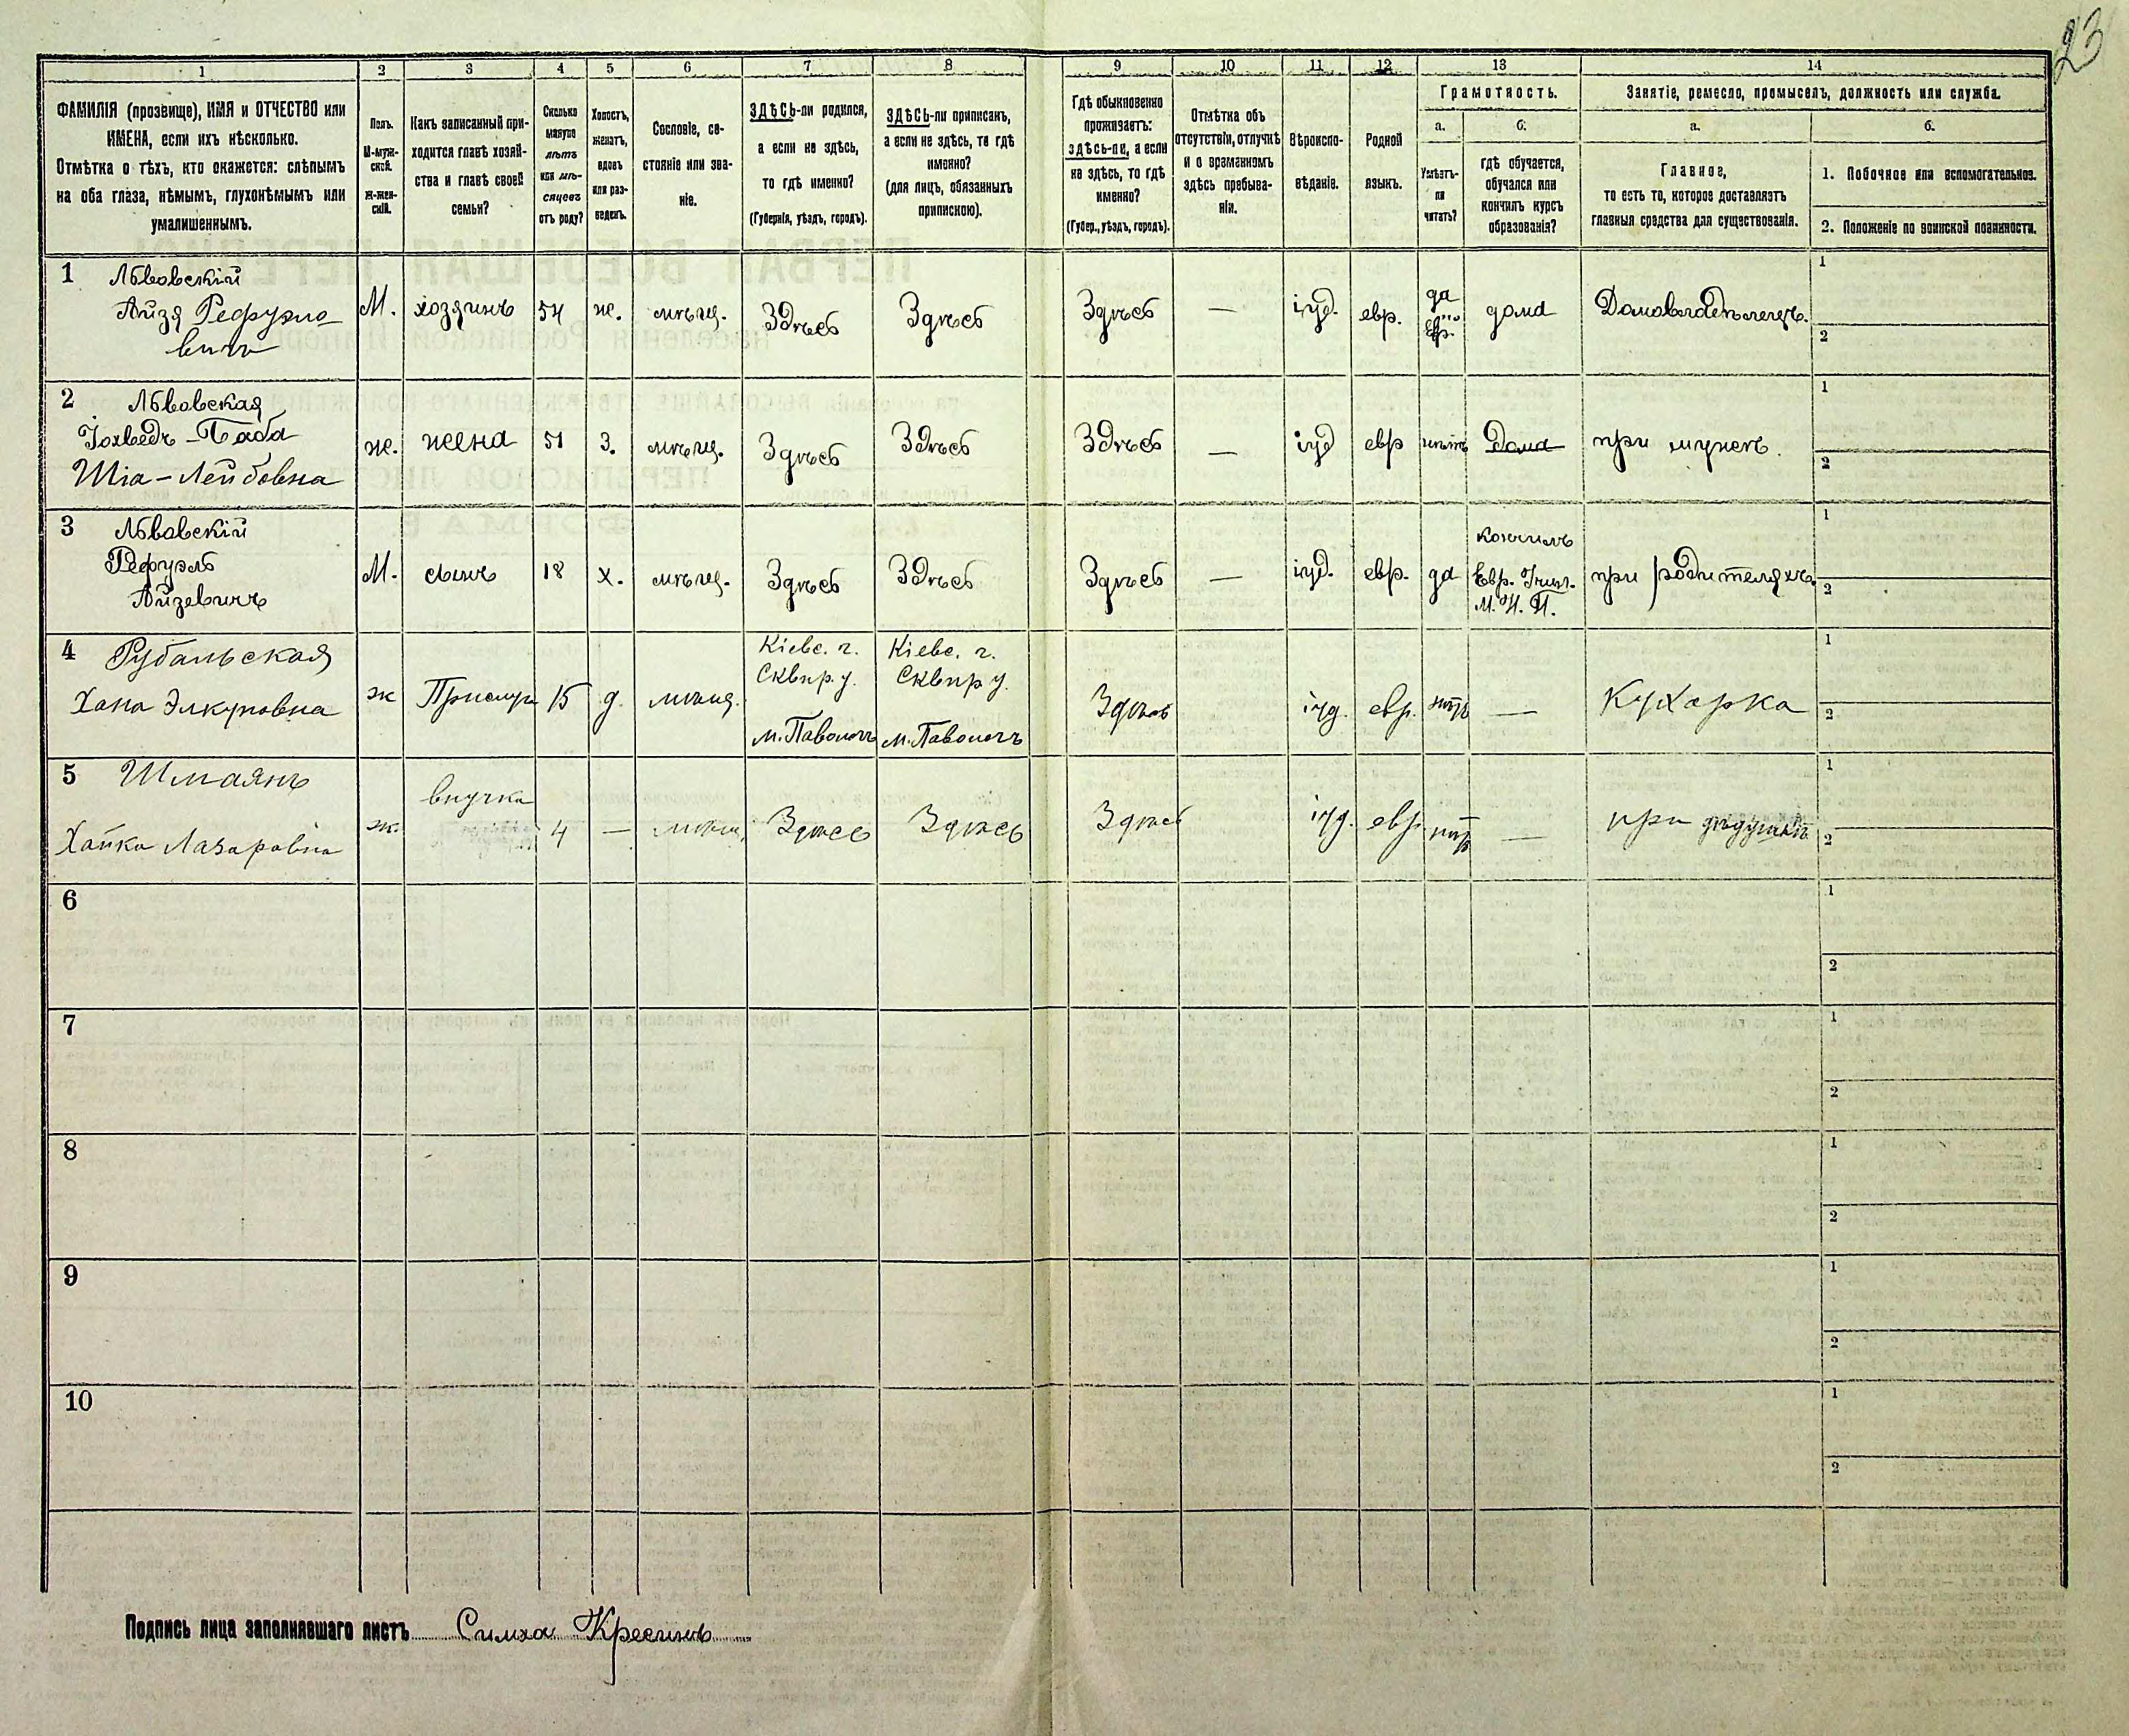 23
1 2 3 4 5 6 7 8 9 10 11 12 13 14
ФАМИЛІЯ (прозвище), ИМЯ и ОТЧЕСТВО или
ИМЕНА, если ихъ нѣсколько.
Отмѣтка о тѣхъ, кто окажется: слѣпымъ
на оба глаза, нѣмымъ, глухонѣмымъ или
умалишеннымъ.
Полъ.
М-муж-
ской.
Ж-жен-
скій.
Какъ записанный при-
ходится главѣ хозяй-
ства и главѣ своей
семьи?
Сколько
минуло
лѣтъ
или мѣ-
сяцевъ
отъ роду?
Холостъ,
женатъ,
вдовъ
или раз-
веденъ.
Сословіе, со-
стояніе или зва-
ніе.
ЗДѢСЬ-ли родился,
а если не здѣсь,
то гдѣ именно?
(Губернія, уѣздъ, городъ).
ЗДѢСЬ-ли приписанъ,
а если не здѣсь, то гдѣ
именно?
(для лицъ, обязанныхъ
припискою).
Гдѣ обыкновенно
проживаетъ:
здѣсь-ли, а если
не здѣсь, то гдѣ
именно?
(Губер., уѣздъ, городъ).
Отмѣтка объ
отсутствіи, отлучкѣ
и о временномъ
здѣсь пребыва-
ніи.
Вѣроиспо-
вѣданіе.
Родной
языкъ.
Грамотность.
а.
Умѣетъ-
ли
читать?
б.
гдѣ обучается,
обучался или
кончилъ курсъ
образованія?
Занятіе, ремесло, промыселъ, должность или служба.
а.
Главное,
то есть то, которое доставляетъ
главныя средства для существованія.
б.
1. Побочное или вспомогательное.
2. Положеніе по воинской повинности.
1 Львовскій
Айзя Рефуэло-
вичъ
М. хозяинъ 54 ж. мѣщ. Здѣсь Здѣсь Здѣсь — іуд. евр. да Евр. дома Домовладѣлецъ.
1
2
2 Львовская
Іохведъ-Баба
Шіа-Лейбовна
ж. жена 51 З. мѣщ. Здѣсь Здѣсь Здѣсь — іуд евр нѣтъ Дома при мужѣ.
1
2
3 Львовскій
Рефуэль
Айзевичъ
М. сынъ 18 х. мѣщ. Здѣсь Здѣсь Здѣсь — іуд. евр. да
кончилъ
Евр. Учил.
М. Н. П.
при родителяхъ.
1
2
4 Рубальская
Хана Элкуновна
ж Прислуг 15 д. мѣщ.
Кіевс. г.
Сквир. у.
м. Паволочъ
Кіевс. г.
Сквир у.
м. Паволочъ
Здѣсь іуд. евр. нѣтъ — Кухарка
1
2
5 Шмаянъ
Хайка Лазаровна
ж. внучка 4 — мѣщ. Здѣсь Здѣсь Здѣсь іуд. евр нѣтъ — при дѣдушкѣ
1
2
6
1
2
7
1
2
8
1
2
9
1
2
10
1
2
Подпись лица заполнявшаго листъ Симха Кресинъ